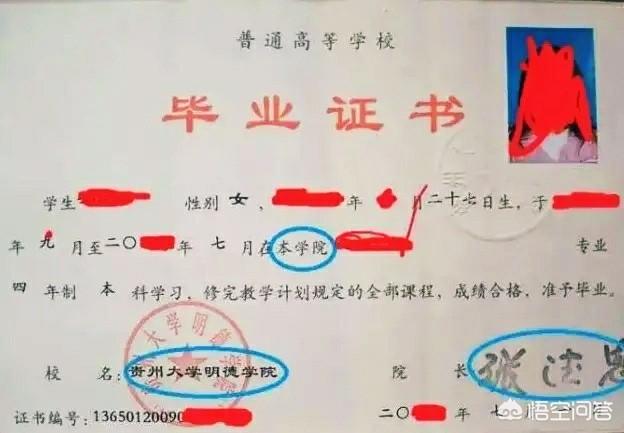 普通高等学校
毕业证书
学生 性别 女， 年 月二十七日生，于
年 九 月至二〇 年 七 月在本学院 专业
四 年制 本 科学习，修完教学计划规定的全部课程，成绩合格，准予毕业。
贵州大学明德学院
校 名：贵州大学明德学院 院 长
证书编号：13650120090 二〇 年 七 月 一
悟空问答